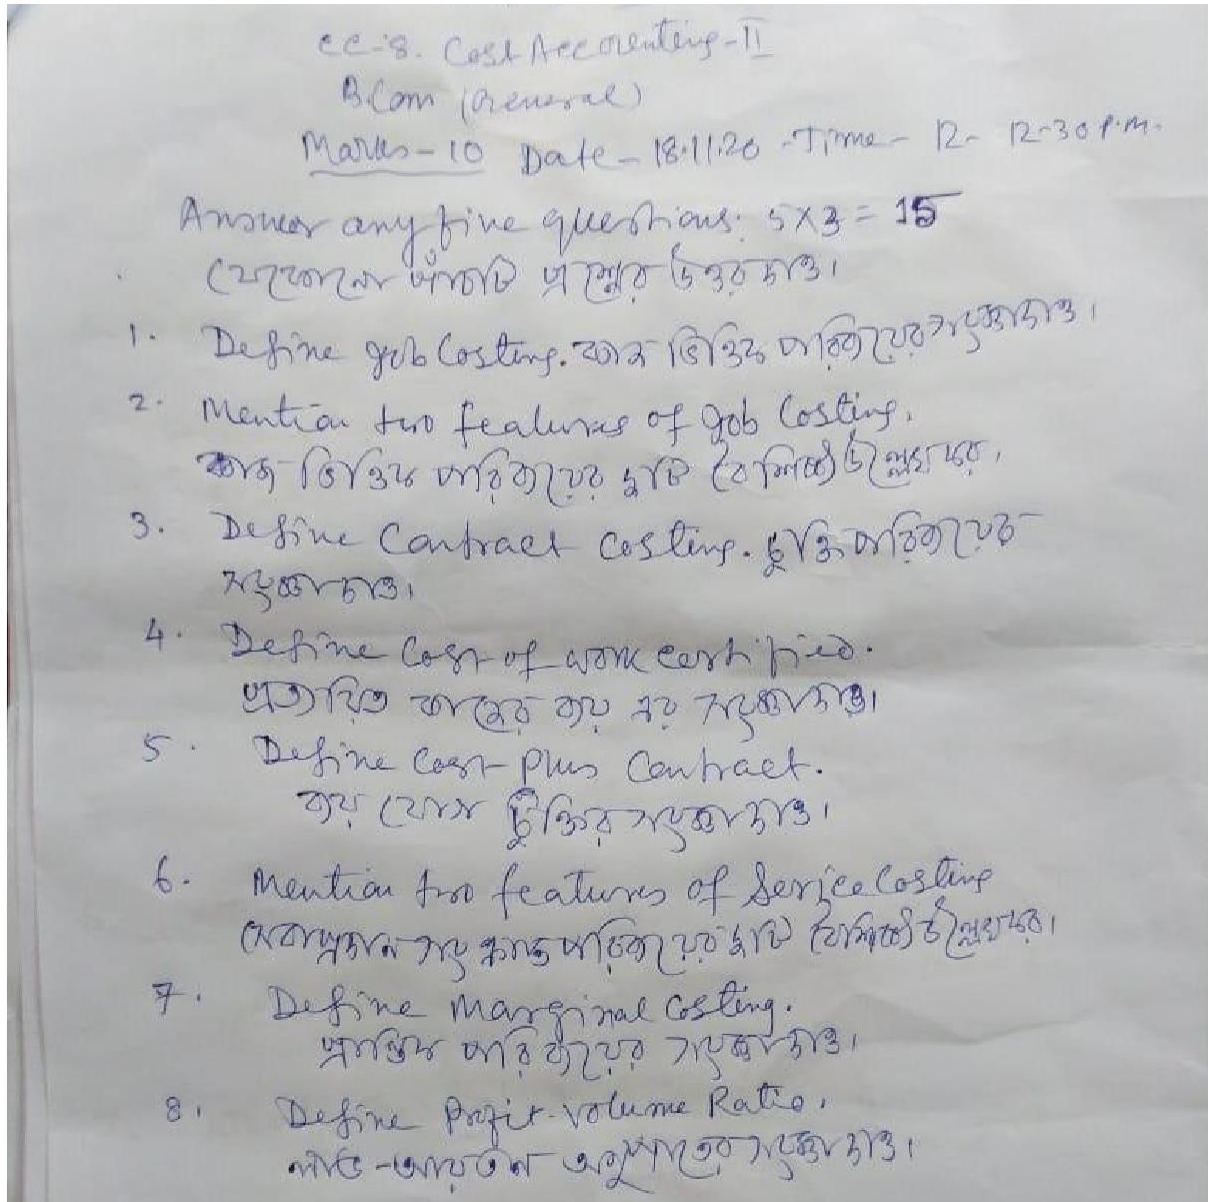 CC-8. Cost Accounting-II
B.Com (General)
Marks-10 Date-18.11.20 -Time- 12- 12-30 P.M.
Answer any five questions: 5X3=15
যেকোনো পাঁচটি প্রশ্নের উত্তর দাও।
1. Define Job Costing. কাজ ভিত্তিক পরিব্যয়ের সংজ্ঞা দাও।
2. Mention two features of Job Costing.
কাজ-ভিত্তিক পরিব্যয়ের দুটি বৈশিষ্ট্য উল্লেখ কর,
3. Define Contract Costing. চুক্তি পরিব্যয়ের
সংজ্ঞা দাও।
4. Define Cost of work certified.
প্রত্যয়িত কাজের ব্যয় এর সংজ্ঞা দাও।
5. Define Cost-Plus Contract.
ব্যয় যোগ চুক্তির সংজ্ঞা দাও।
6. Mention two features of Serice Costing
সেবাপ্রদান সংক্রান্ত পরিব্যয়ের দুটি বৈশিষ্ট্য উল্লেখ কর।
7. Define Marginal Costing.
প্রান্তিক পরিব্যয়ের সংজ্ঞা দাও।
8. Define Profit-Volume Ratio.
লাভ-আয়তন অনুপাতের সংজ্ঞা দাও।